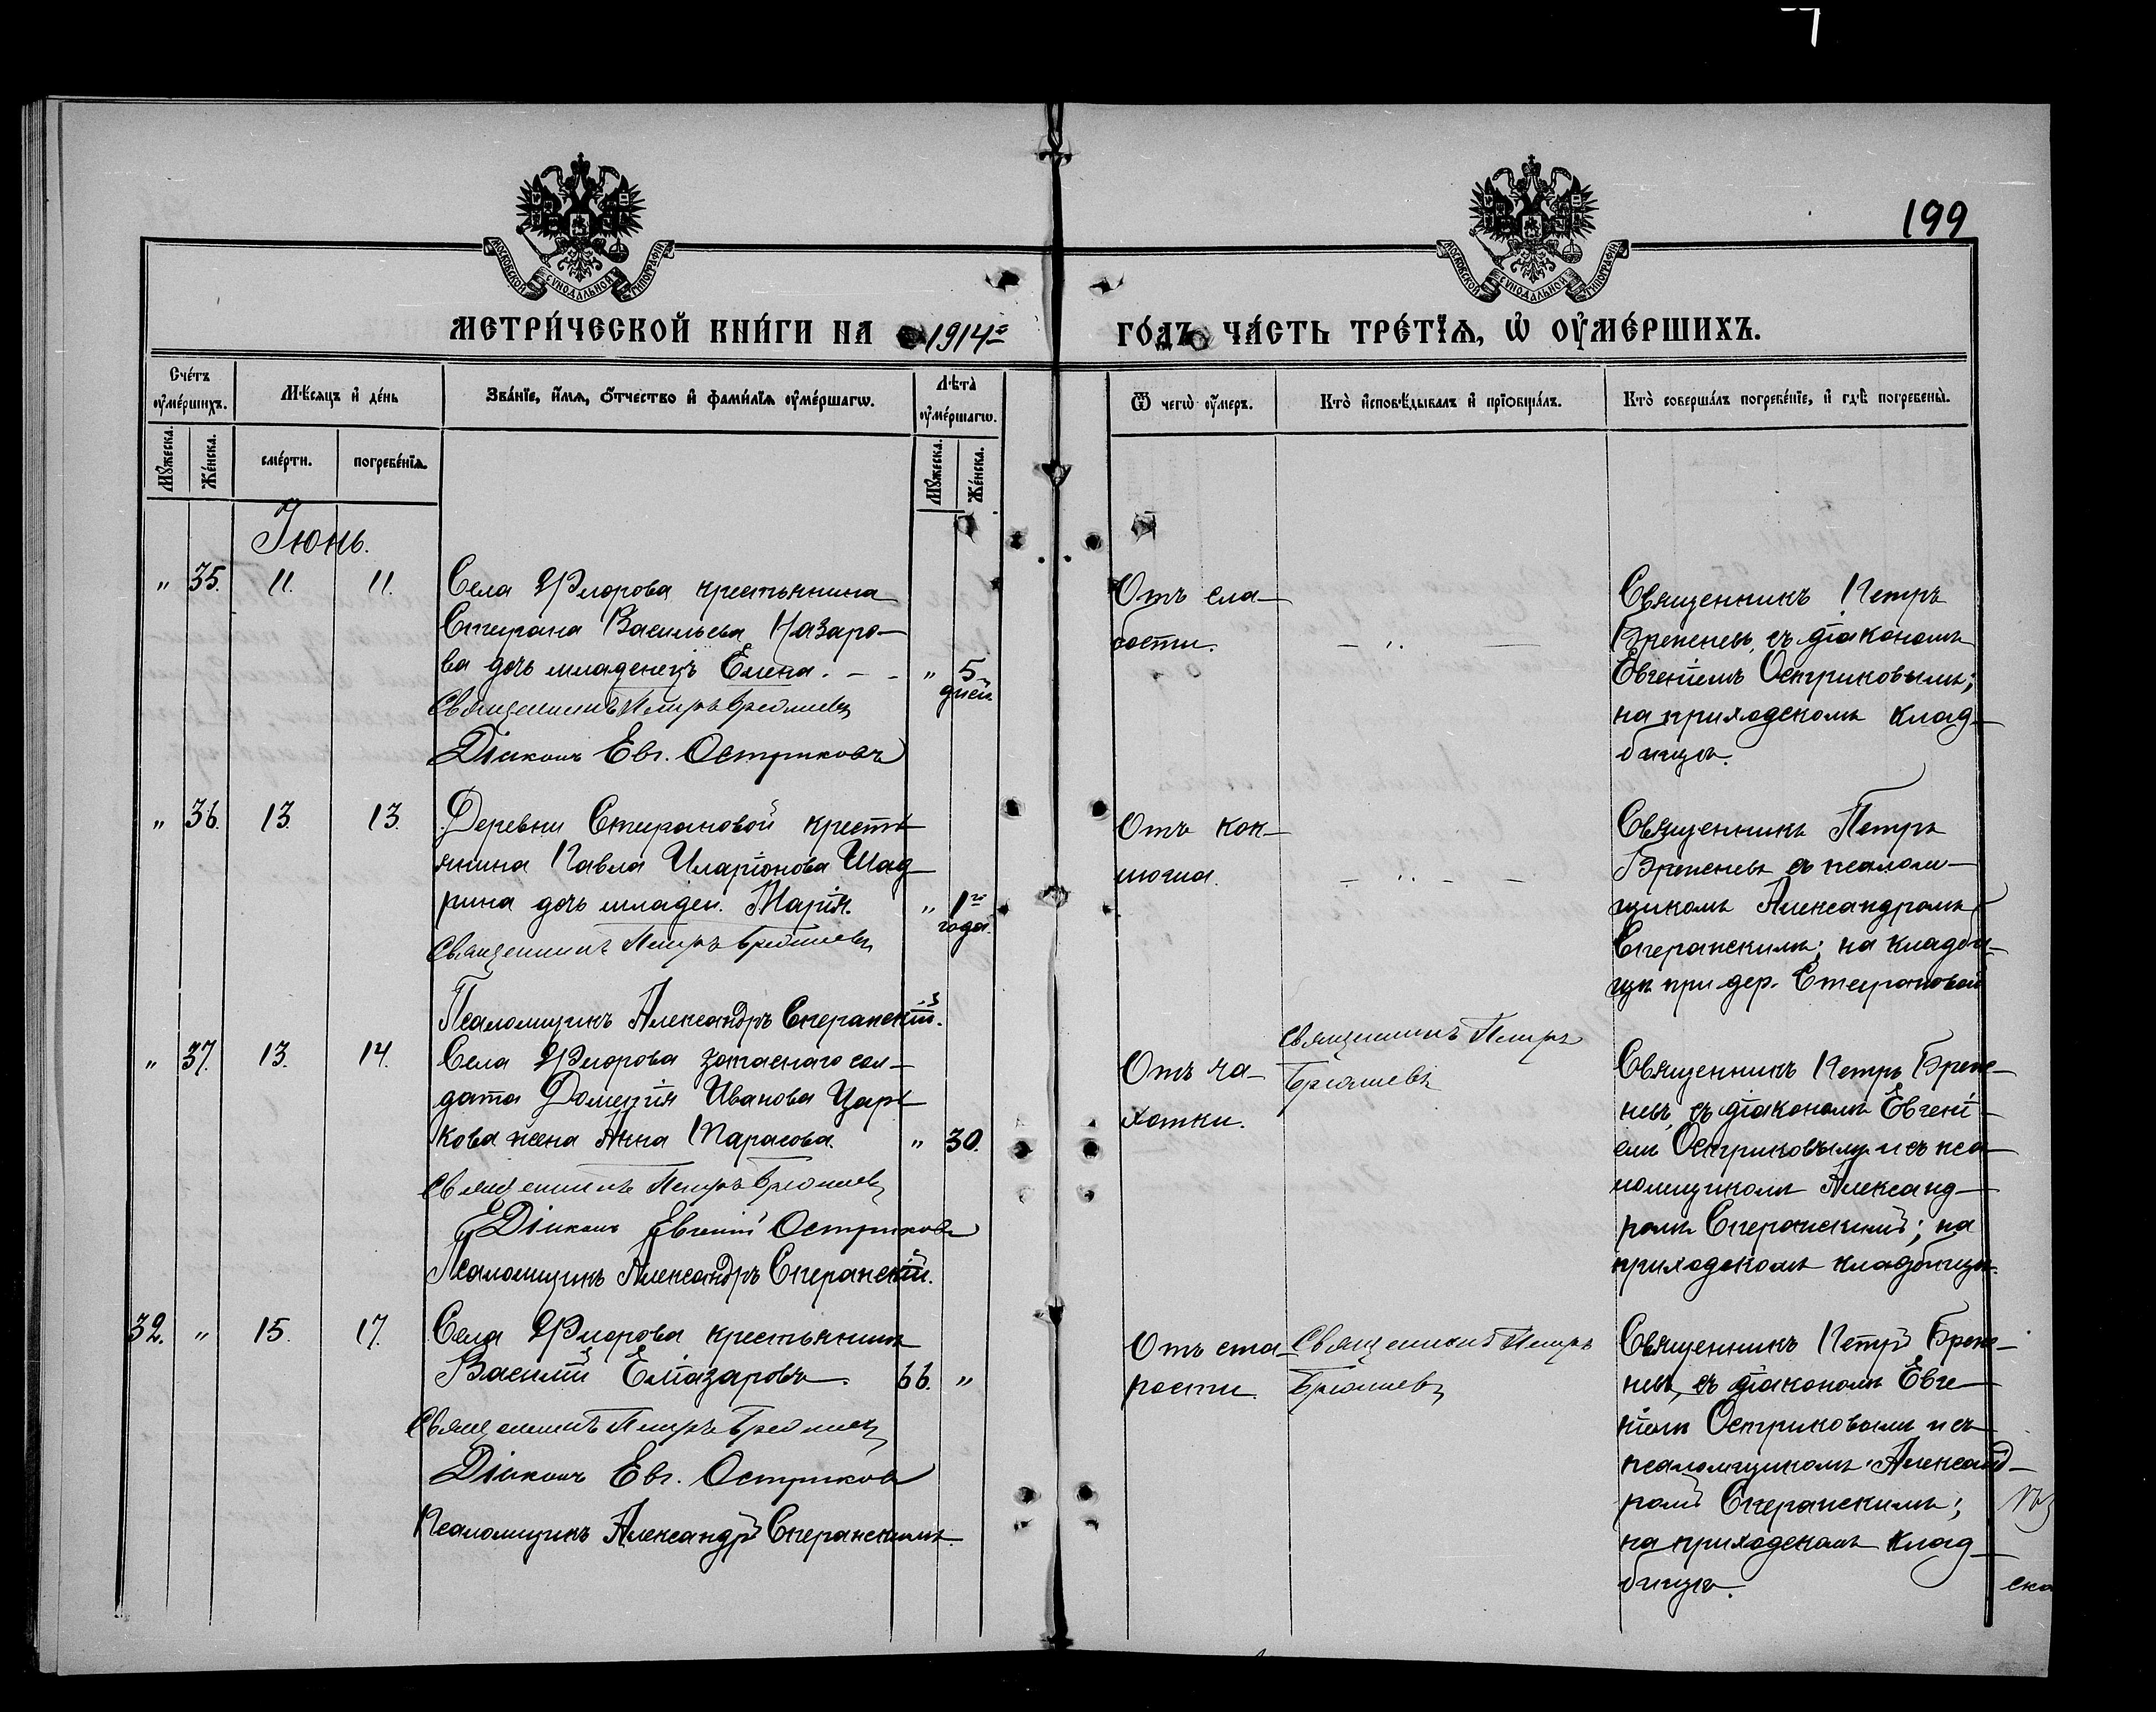 199
МОСКОВСКОЙ СУНОДАЛЬНОЙ ТИПОГРАФІИ
МОСКОВСКОЙ СУНОДАЛЬНОЙ ТИПОГРАФІИ
МЕТРИ́ЧЕСКОЙ КНИ́ГИ НА 1914й
ГО́ДЪ ЧА́СТЬ ТРЕ́ТЇѦ, Ѡ҆ ОУ҆МЕ́РШИХЪ.
Сче́тъ оу҆ме́ршихъ.
Мꙋ́жеска.
Же́нска.
Мѣ́сѧцъ и҆ де́нь
сме́рти.
погребе́нїѧ.
Зва́нїе, и҆́мѧ, ѻ҆́тчество и҆ фами́лїѧ оу҆ме́ршагѡ.
Лѣ́та оу҆ме́ршагѡ.
Мꙋ́жеска.
Же́нска.
Ѿ чегѡ̀ оу҆́меръ.
Кто̀ и҆сповѣ́дывалъ и҆ прїѡбща́лъ.
Кто̀ соверша́лъ погребе́нїе, и҆ гдѣ̀ погребены̀.
Іюнь.
" 35. 11. 11.
Села Флорова крестьянина
Степана Васильева Назаро-
ва дочь младенецъ Елена.
" 5 дней.
Священникъ Петръ
Діаконъ Евг. Остриковъ
Отъ сла-
бости.
Священникъ Петръ
съ діакономъ
Евгеніемъ Остриковымъ;
на приходскомъ клад-
бищѣ.
" 36. 13. 13.
Деревни кресть-
янина Павла Иларіонова Шад-
рина дочь младен. Марія.
" 1го года.
Священникъ Петръ
Псаломщикъ Александръ Сперанскій.
Отъ кок-
люша.
Священникъ Петръ
съ псалом-
щикомъ Александромъ
Сперанскимъ; на кладби-
щѣ при дер.
" 37. 13. 14.
Села Флорова запаснаго сол-
дата Дометія Иванова Царь-
кова жена Анна Тарасова.
" 30.
Священникъ Петръ
Діаконъ Евгеній Остриковъ
Псаломщикъ Александръ Сперанскій.
Отъ ча-
хотки.
Священникъ Петръ
Священникъ Петръ
съ діакономъ Евгені-
емъ Остриковымъ и съ пса-
ломщикомъ Александ-
ромъ Сперанскимъ; на
приходскомъ кладбищѣ.
32. " 15. 17.
Села Флорова крестьянинъ
Василій Еліазаровъ.
66. "
Священникъ Петръ
Діаконъ Евг. Остриковъ
Псаломщикъ Александръ Сперанскимъ.
Отъ ста-
рости.
Священникъ Петръ
Священникъ Петръ
съ діакономъ Евге-
ніемъ Остриковымъ и съ
псаломщикомъ Александ-
ромъ Сперанскимъ;
на приходскомъ клад-
бищѣ.